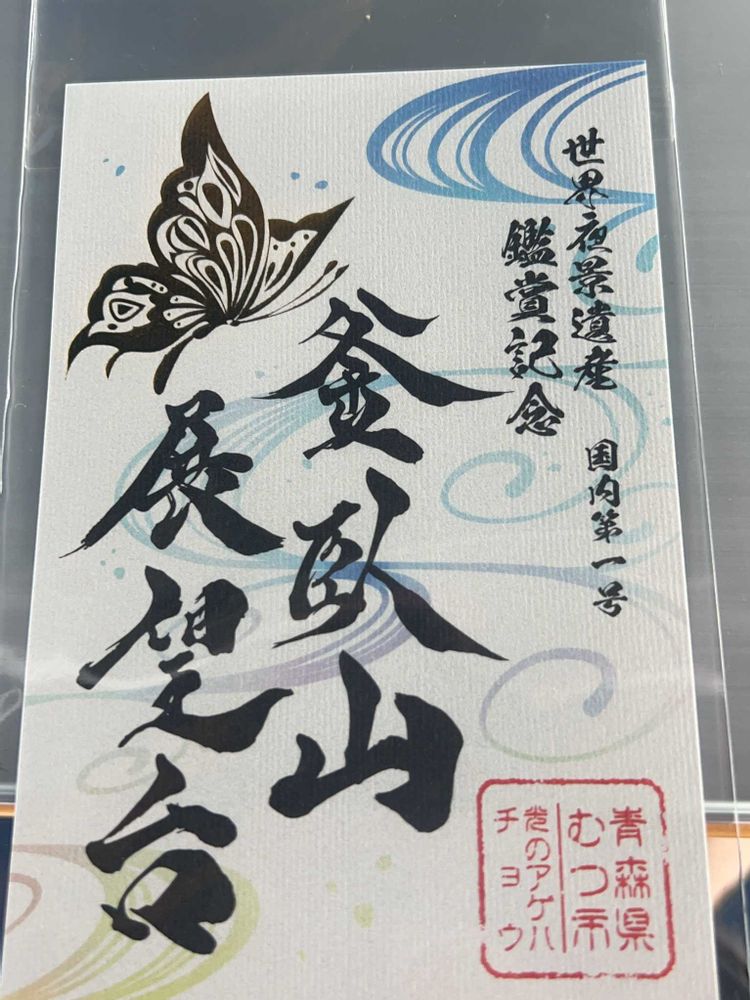 世界夜景遺産 国内第一号
鑑賞記念
釜臥山
展望台
青森県
むつ市
光のアゲハ
チョウ